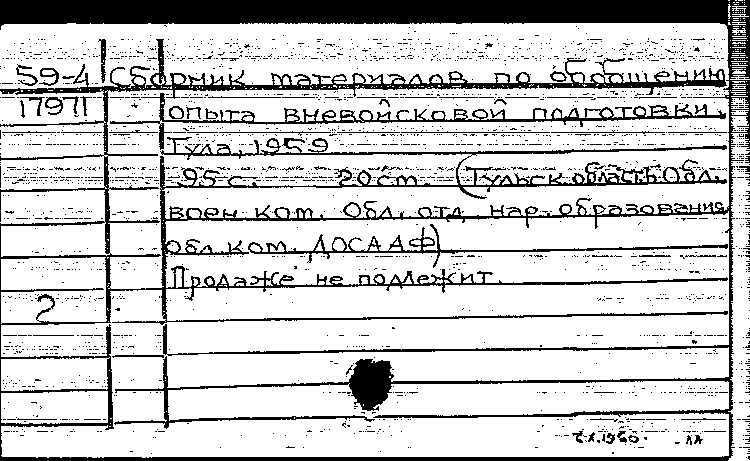 59-4 Сборник материалов по обобщению
17971 опыта вневойсковой подготовки.
Тула, 1959
95 с. 20 см. (Тульск. область. Обл.
воен. ком. Обл. отд. нар. образования
обл. ком. ДОСААФ)
Продаже не подлежит.
2